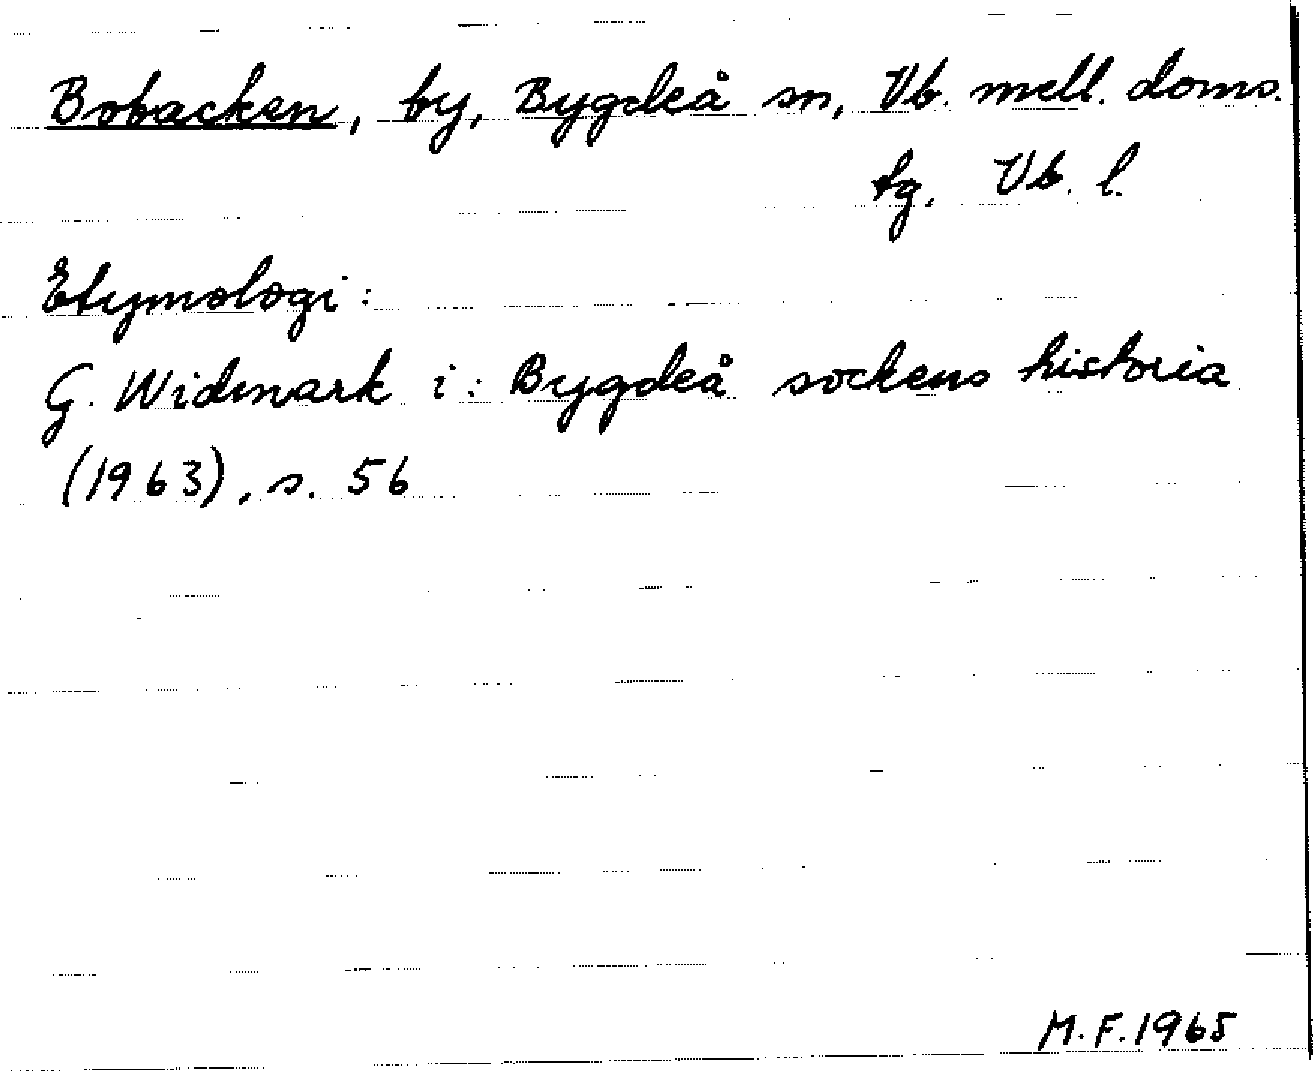 Bobacken, by, Bygdeå sn, Vb. mell. doms.
tg. Vb. l.
Etymologi:
G. Widmark i: Bygdeå sockens historia
(1963), s. 56
M.F. 1965